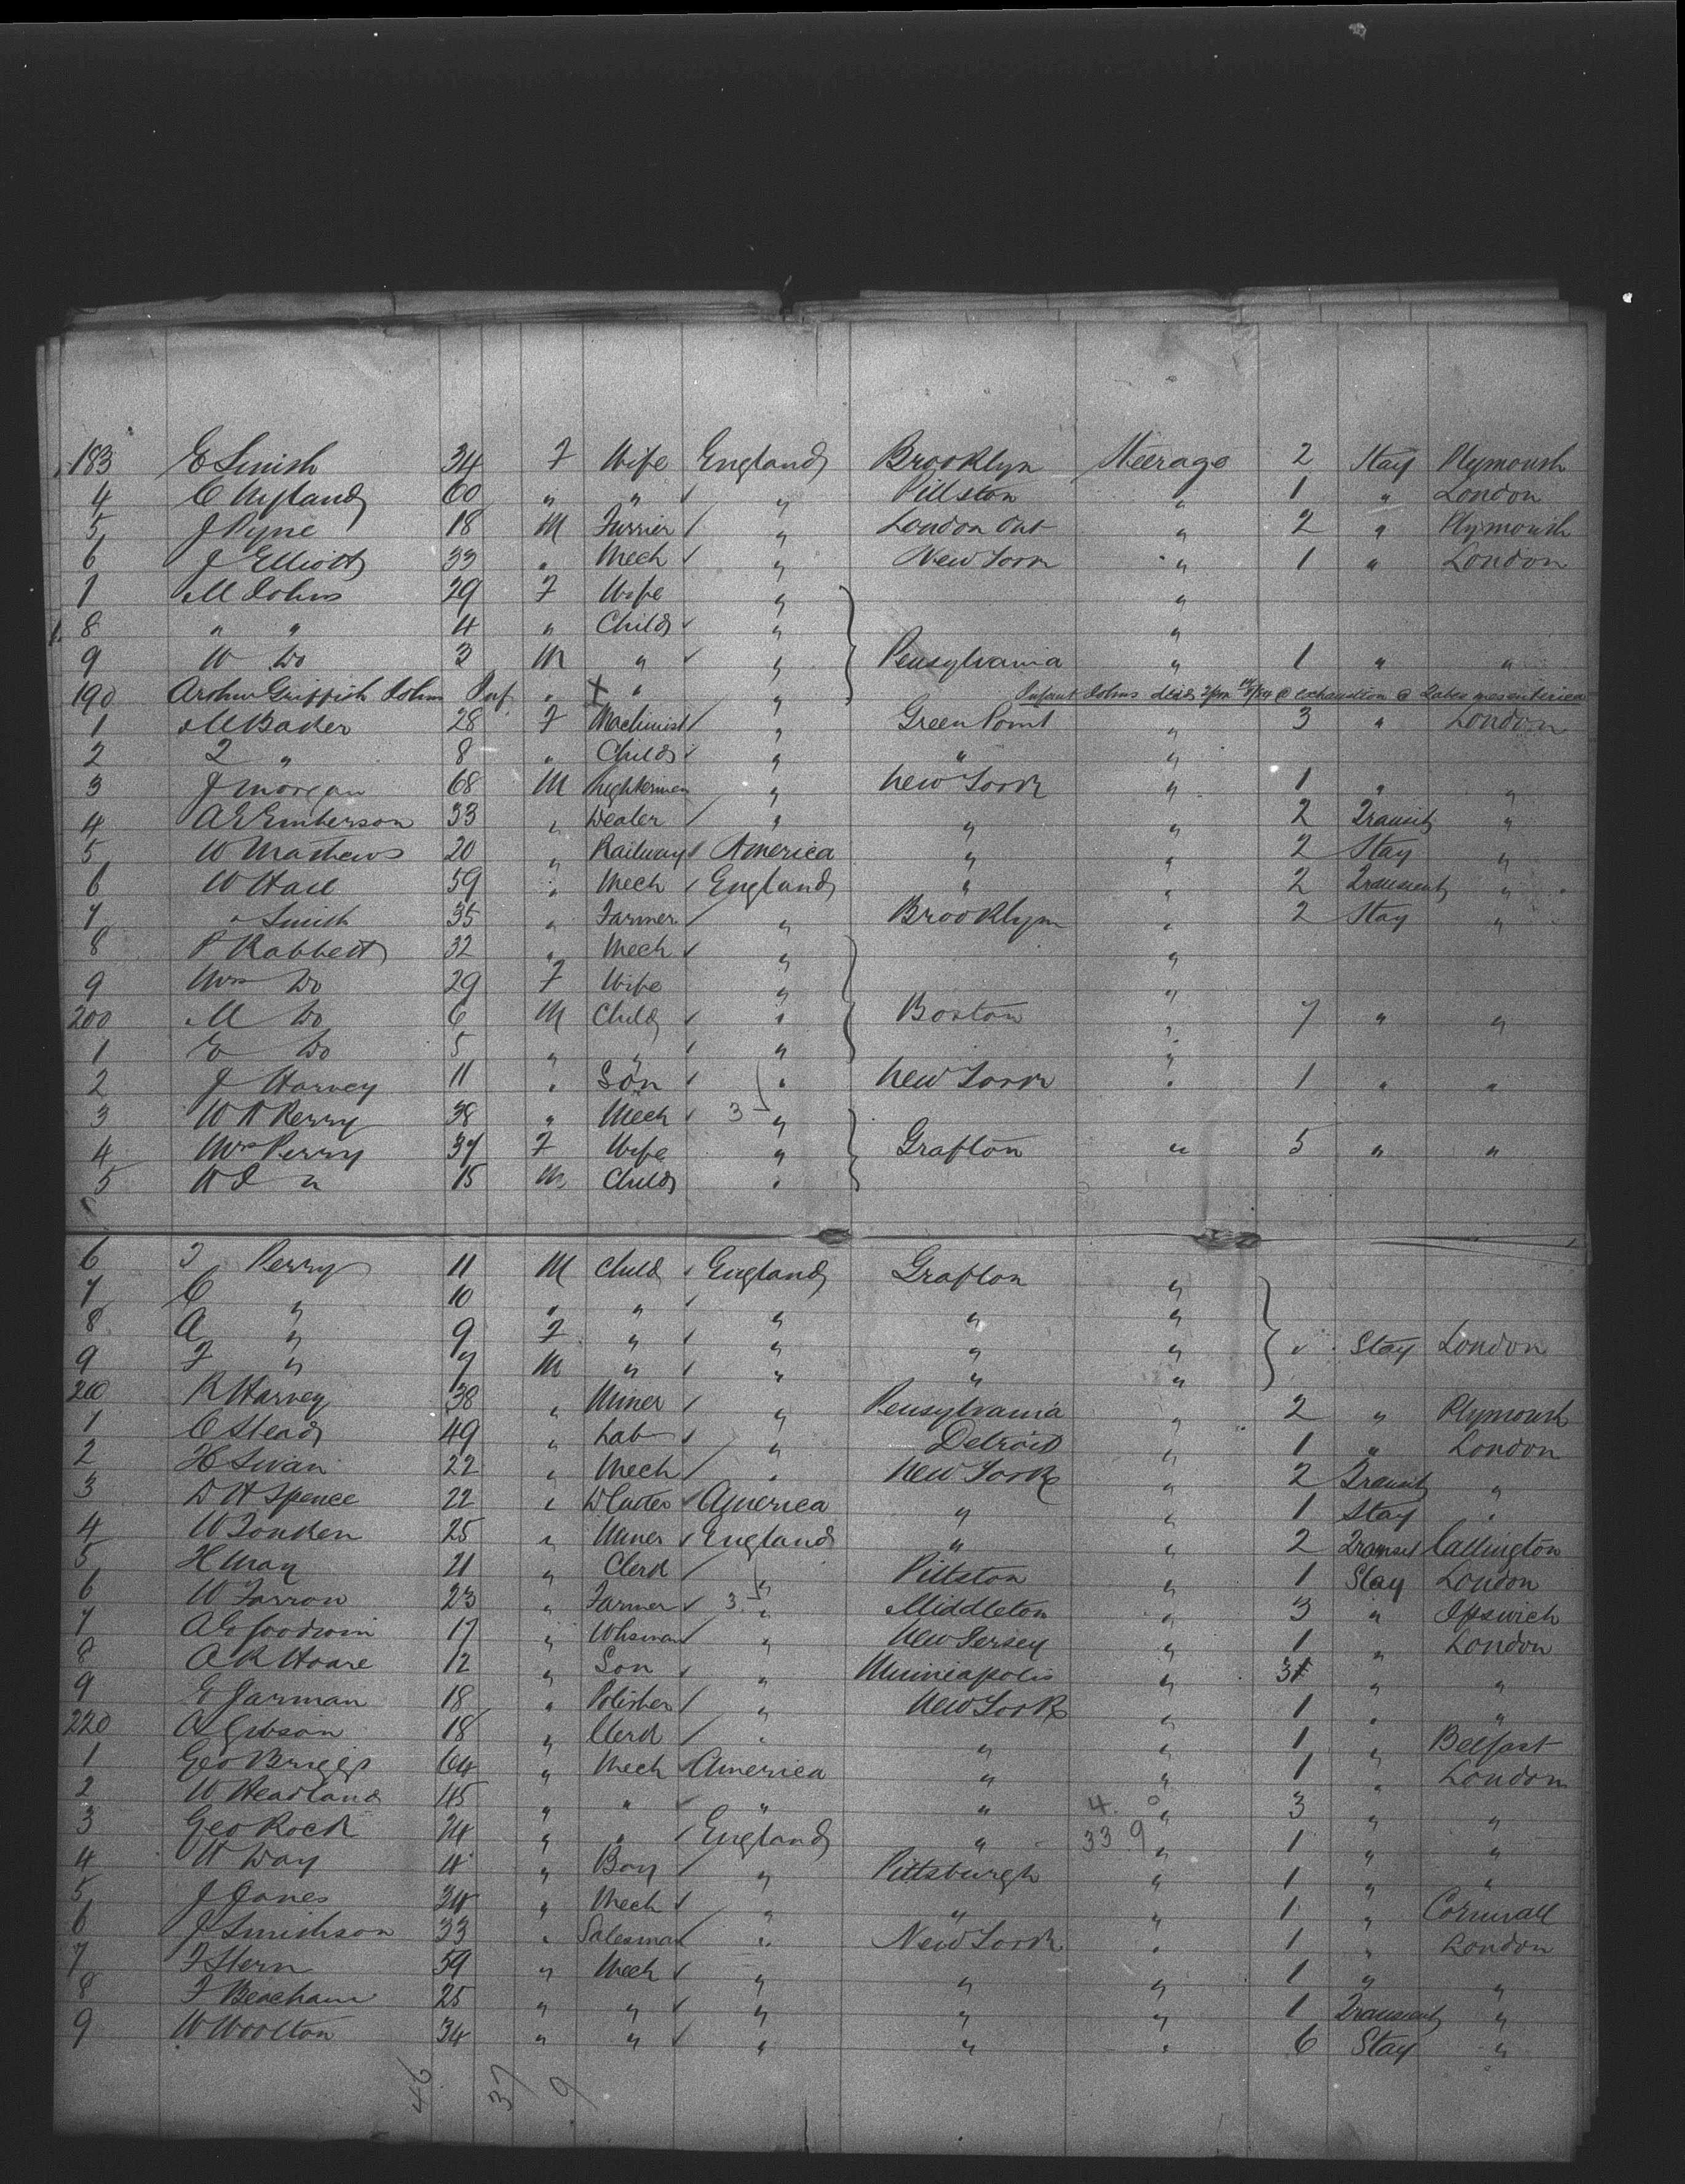 183 E Smith 34 F Wife England Brooklyn Steerage 2 Stay Plymouth
4 C Nyland 60 " " " Pittston " 1 " London
5 J Pyne 18 M Furrier " London Ont " 2 " Plymouth
6 J Elliott 33 " Mech " New York " 1 " London
7 M Johns 29 F Wife " "
8 " " 4 " Child " "
9 W Do 3 M " " Pensylvania " 1 " "
190 Arthur Griffith Johns Inf " X " " Infant Johns died 2 pm exhaustion Tabes mesenterica
1 M Baker 28 F Machinist " Green Point " 3 " London
2 " 8 " Child " " "
3 J Morgan 68 M Lighterman " New York " 1 " "
4 A E Emberson 33 " Dealer " " " 2 Transit "
5 W Mathews 20 " Railway America " " 2 Stay "
6 W Hall 59 " Mech England " " 2 Transient "
7 " Smith 35 " Farmer " Brooklyn " 2 Stay "
8 P Rabbett 32 " Mech " "
9 Mrs Do 29 F Wife " "
200 M Do 6 M Child " Boston " 7 " "
1 E Do 5 " " " "
2 J Harvey 11 " Son " New York " 1 " "
3 W H Perry 38 " Mech 3 "
4 Mrs Perry 37 F Wife " Grafton " 5 " "
5 " 15 M Child "
6 Perry 11 M Child England Grafton "
7 C " 10 " " " " "
8 A " 9 F " " " "
9 F " 7 M " " " " Stay London
210 R Harvey 38 " Miner " Pensylvania " 2 " Plymouth
1 C Stead 49 " Lab " Detroit " 1 " London
2 H Swan 22 " Mech " New York " 2 Transit "
3 D H Spence 22 " America " " 1 Stay "
4 W Tonken 25 " Miner England " " 2 Transit Callington
5 H May 21 " Clerk " Pittston " 1 Stay London
6 W Farron 23 " Farmer 3 " Middleton " 3 " Ipswich
7 A G Goodwin 17 " Whsman " New Jersey " 1 " London
8 A R Hoare 12 " Son " Minneapolis " 3 " "
9 G Jarman 18 " Polisher " New York " 1 " "
220 A Gibson 18 " Clerk " " " 1 " Belfast
1 Geo Briggs 64 " Mech America " " 1 " London
2 W Headland 45 " " " " 4. 0 " 3 " "
3 Geo Rock 24 " " England " 33 9 " 1 " "
4 H Day 11 " Boy " Pittsburgh " 1 " "
5 J Jones 24 " Mech " " " 1 " Cornwall
6 J Smithson 33 " Salesman " New York " 1 " London
7 F Stern 59 " Mech " " " 1 " "
8 F Beacham 25 " " " " " 1 Transient "
9 W Woolton 34 " " " " " 6 Stay "
46 37 9